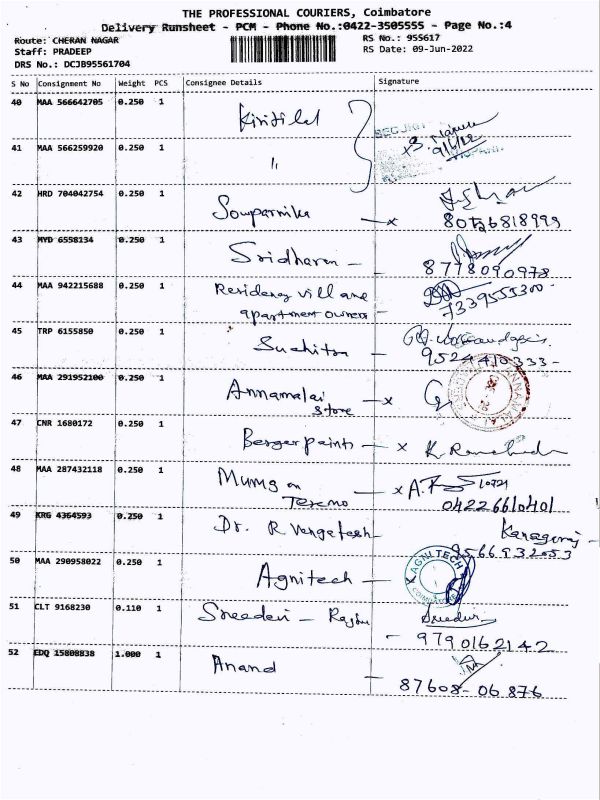 THE PROFESSIONAL COURIERS, Coimbatore
Delivery Runsheet - PCM - Phone No.:0422-3505555 - Page No.:4
Route: CHERAN NAGAR RS No.: 955617
Staff: PRADEEP RS Date: 09-Jun-2022
DRS No.: DCJB95561704
S No Consignment No Weight PCS Consignee Details Signature
40 MAA 566642705 0.250 1
41 MAA 566259920 0.250 1 "
9/6/22
42 HRD 704042754 0.250 1 Souparnika - x
43 MYD 6558134 0.250 1 Sridharan -
8778090978
44 MAA 942215688 0.250 1 Residency vill and
apartment owners - 7339555300 -
45 TRP 6155850 0.250 1 Suchitra -
9524410333-
46 MAA 291952100 0.250 1 Annamalai
Store - x
47 CNR 1680172 0.250 1 Berger paints - x
48 MAA 287432118 0.250 1
04226610401
49 KRG 4364593 0.250 1 Dr. R Vengatesh -
9566932053
50 MAA 290958022 0.250 1 Agnitech - AGNITECH
51 CLT 9168230 0.110 1 Sreedevi -
- 9790162142
52 EDQ 15808838 1.000 1 Anand
- 87608-06876